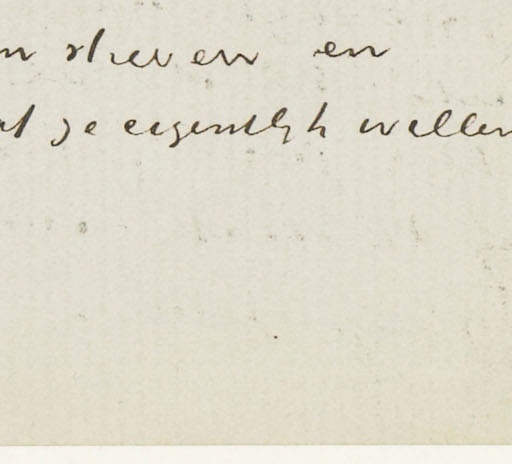 n streven en
at ze eigentlijk willen